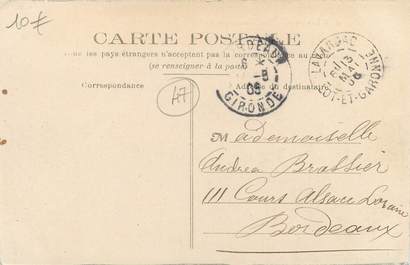 10€
CARTE POSTALE
les pays étrangers n'acceptent pas la correspondance au
(se renseigner à la poste)
Correspondance
du destinataire
47
BORDEAUX
GIRONDE
LOT-ET-GARONNE
Mademoiselle
Andrea Brassier
111 Cours Alsace Loraine
Bordeaux